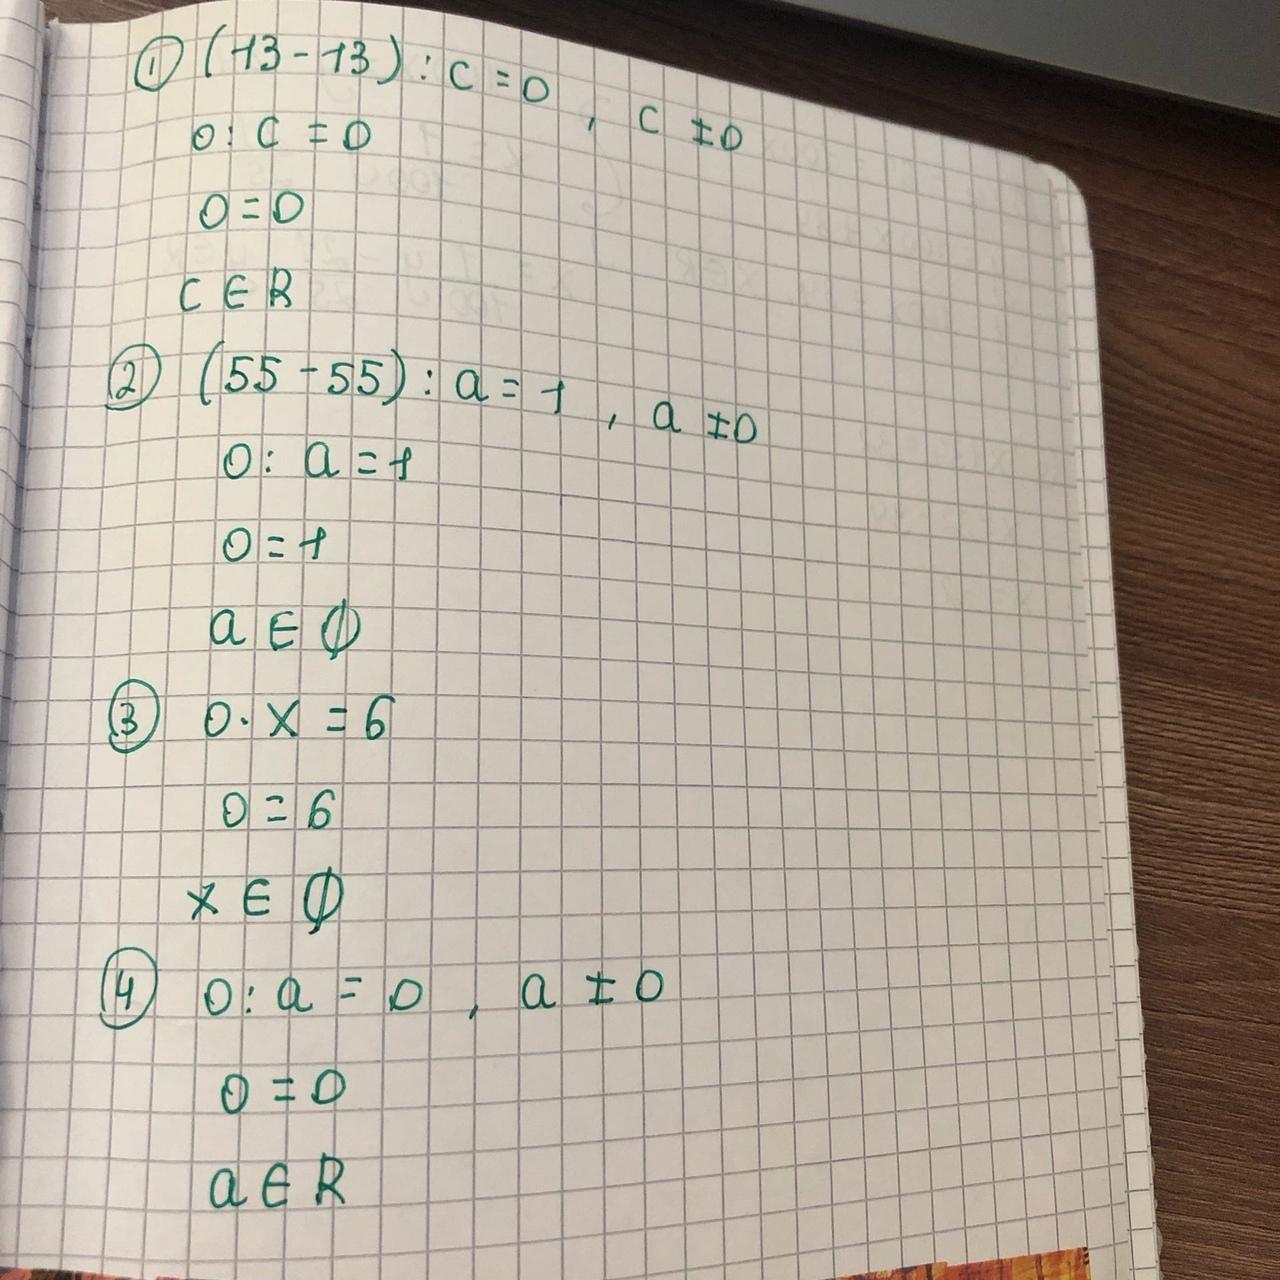 ① (13-13) : c = 0 , c ≠ 0
0 : c = 0
0 = 0
c ∈ R
② (55-55) : a = 1 , a ≠ 0
0 : a = 1
0 = 1
a ∈ ∅
③ 0 · x = 6
0 = 6
x ∈ ∅
④ 0 : a = 0 , a ≠ 0
0 = 0
a ∈ R